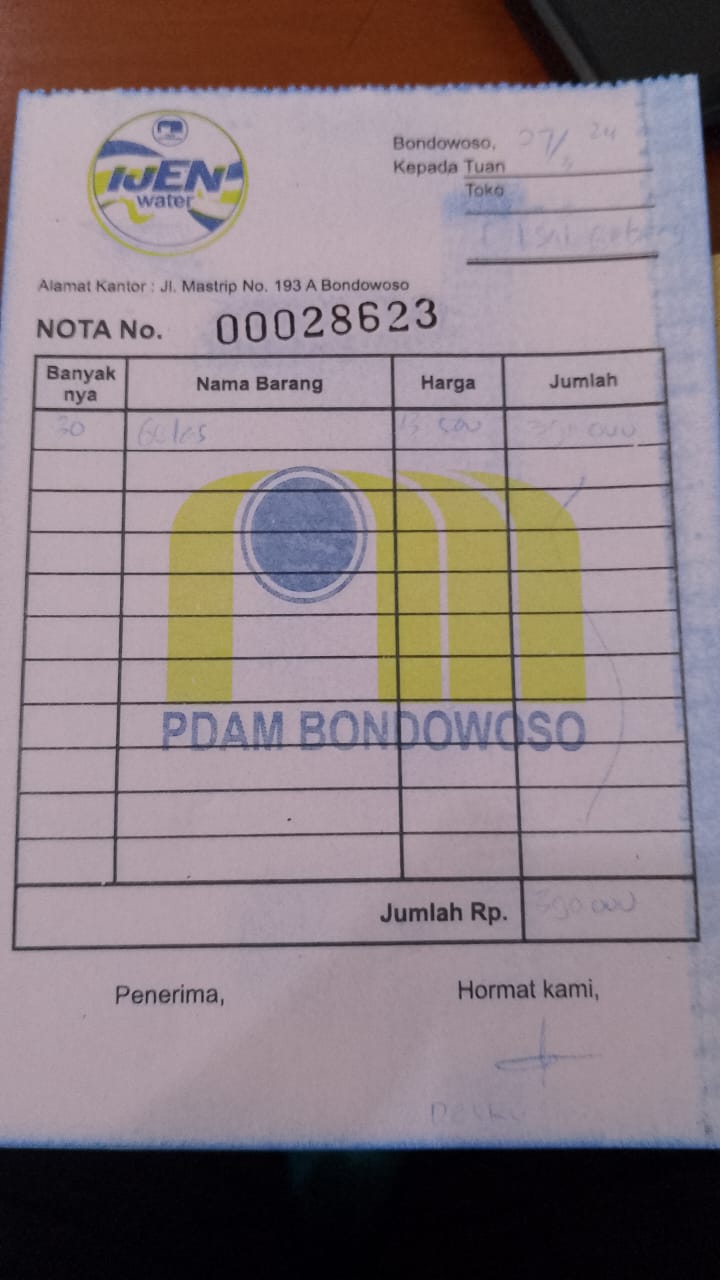 IJEN
water
Bondowoso, 07/3 24
Kepada Tuan
Toko
Alamat Kantor : Jl. Mastrip No. 193 A Bondowoso
NOTA No. 00028623
Banyak nya Nama Barang Harga Jumlah
30 Gelas 390 000
PDAM BONDOWOSO
Jumlah Rp. 390 000
Penerima, Hormat kami,